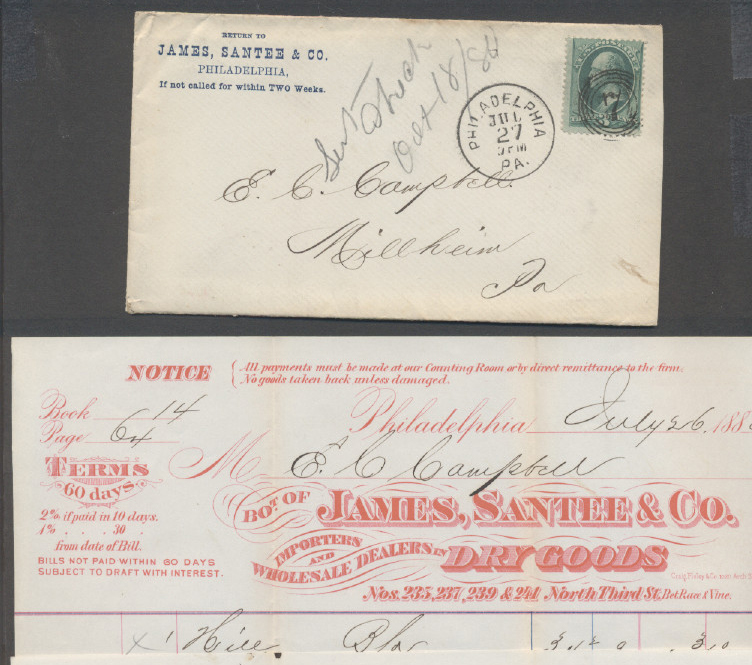 RETURN TO
JAMES, SANTEE & CO.
PHILADELPHIA,
If not called for within TWO Weeks.
Sent
Oct 18/80
PHILADELPHIA
JUL
27
PM
PA.
E. C. Campbell
Millheim
Pa
NOTICE
All payments must be made at our Counting Room or by direct remittance to the firm.
No goods taken back unless damaged.
Book 14
Page 64
Philadelphia July 26, 188
TERMS
60 days.
M E. C. Campbell
2% if paid in 10 days.
1% . . . . 30 .
from date of Bill.
BILLS NOT PAID WITHIN 60 DAYS
SUBJECT TO DRAFT WITH INTEREST.
BOT. OF JAMES, SANTEE & CO.
IMPORTERS
AND
WHOLESALE DEALERS IN DRY GOODS
Nos. 235, 237, 239 & 241 North Third St, Bet. Race & Vine.